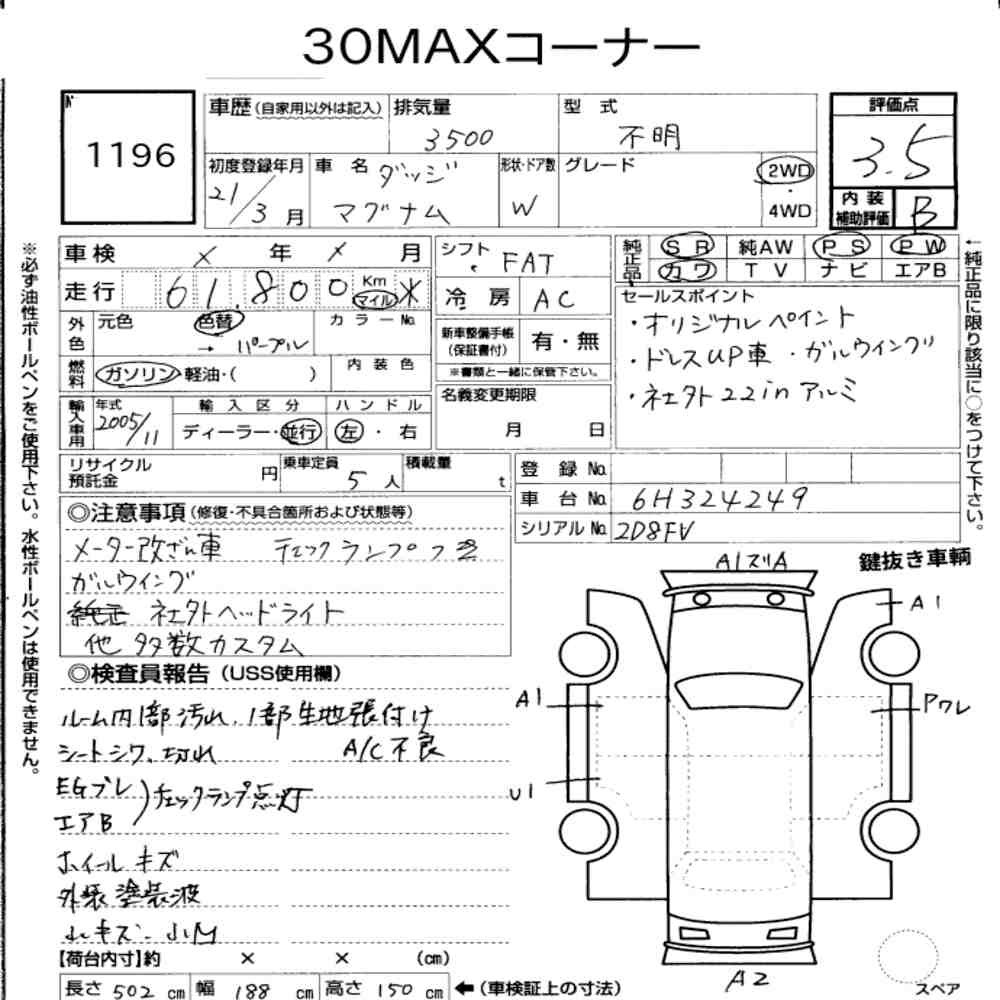 30MAXコーナー
1196
車歴(自家用以外は記入) 排気量 3500 型式 不明 評価点 3.5
初度登録年月 21/3月 車名 ダッジ マグナム 形状・ドア数 W グレード 2WD・4WD 内装補助評価 B
車検 × 年 × 月 シフト FAT 純正品 SR 純AW PS PW
カワ TV ナビ エアB
走行 61,800 Km マイル ※ 冷房 AC
セールスポイント
・オリジナルペイント
・ドレスUP車 ・ガルウイング
・社外22inアルミ
外色 元色 色替 → パープル カラーNo.
新車整備手帳(保証書付) 有・無
※書類と一緒に保管下さい。
燃料 ガソリン・軽油・( ) 内装色
名義変更期限 月 日
輸入車用 年式 2005/11 輸入区分 ディーラー・並行 ハンドル 左・右
リサイクル預託金 円 乗車定員 5人 積載量 t
登録No.
車台No. 6H324249
シリアルNo. 2D8FV
◎注意事項(修復・不具合箇所および状態等)
メーター改ざん車 チェックランプ
ガルウイング
純正 社外ヘッドライト
他 多数カスタム
◎検査員報告(USS使用欄)
ルーム内1部汚れ、1部生地張付け
シートシワ、切れ A/C不良
EGブレ
エアB
)チェックランプ点灯
ホイールキズ
外装塗装波
小キズ・小凹
【荷台内寸】約 × × (cm)
長さ 502 cm 幅 188 cm 高さ 150 cm ←(車検証上の寸法)
鍵抜き車輌
A1ズA
A1
A1
Pワレ
U1
A2
スペア
※必ず油性ボールペンをご使用下さい。水性ボールペンは使用できません。
←純正品に限り該当に○をつけて下さい。